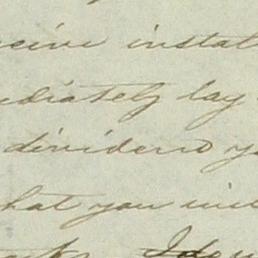 ceive instal
ediately lay
dividend y
hat you wil
I do